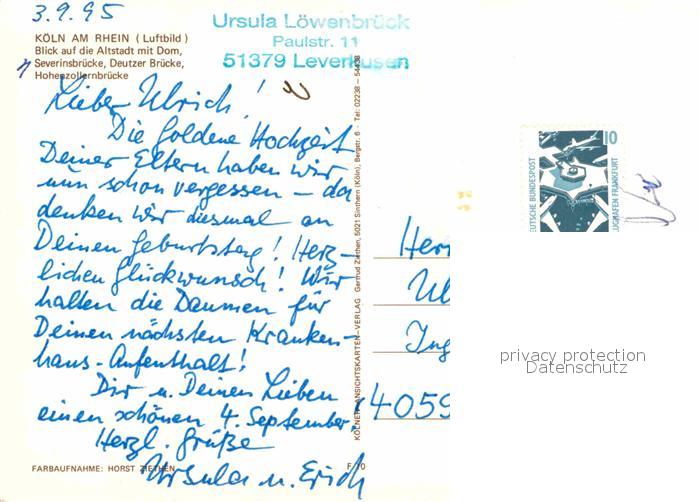 3.9.95
KÖLN AM RHEIN ( Luftbild )
Blick auf die Altstadt mit Dom,
Severinsbrücke, Deutzer Brücke,
Hohenzollernbrücke
Ursula Löwenbrück
Paulstr. 11
51379 Leverkusen
Lieber Ulrich!
Die goldene Hochzeit
Deiner Eltern haben wir
nun schon vergessen – da
denken wir diesmal an
Deinen Geburtstag! Herz-
lichen Glückwunsch! Wir
halten die Daumen für
Deinen nächsten Kranken-
haus-Aufenthalt!
Dir u. Deinen Lieben
einen schönen 4. September.
Herzl. Grüße
Ursula u. Erich
FARBAUFNAHME: HORST ZIETHEN
F 10
KÖLNER ANSICHTSKARTEN-VERLAG Gertrud Ziethen, 5021 Sinthern (Köln), Bergstr. 6 · Tel: 02238 - 54438
Herr
Ul
Ing
4059
10
DEUTSCHE BUNDESPOST
FLUGHAFEN FRANKFURT
privacy protection
Datenschutz